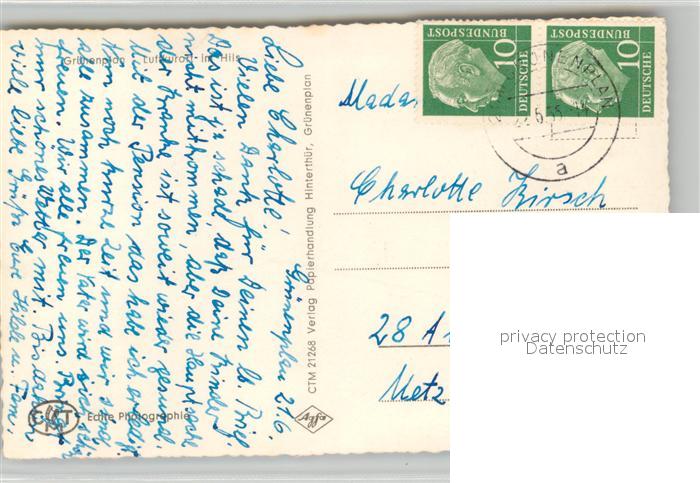 Grünenplan Luftkurort im Hils
Grünenplan 21.6.
Liebe Charlotte!
Vielen Dank für Deinen lb. Brief.
Das ist ja schade, daß Deine Kinder
nicht mitkommen, aber die Hauptsache
der Franke ist soweit wieder gesund.
Mit der Pension das habe ich erledigt.
Kom noch kurze Zeit und wir sind
alle zusammen. Der Vater wird sich sehr
freuen. Wir alle freuen uns. Bringt
nur schönes Wetter mit.
viele liebe Grüße Eure Hilde u. Fam.
Echte Photographie
CTM 21268 Verlag Papierhandlung Hinterthür, Grünenplan
Agfa
DEUTSCHE
BUNDESPOST
10
DEUTSCHE
BUNDESPOST
10
GRÜNENPLAN
a
Madam
Charlotte Kirsch
28 A
Metz
privacy protection
Datenschutz